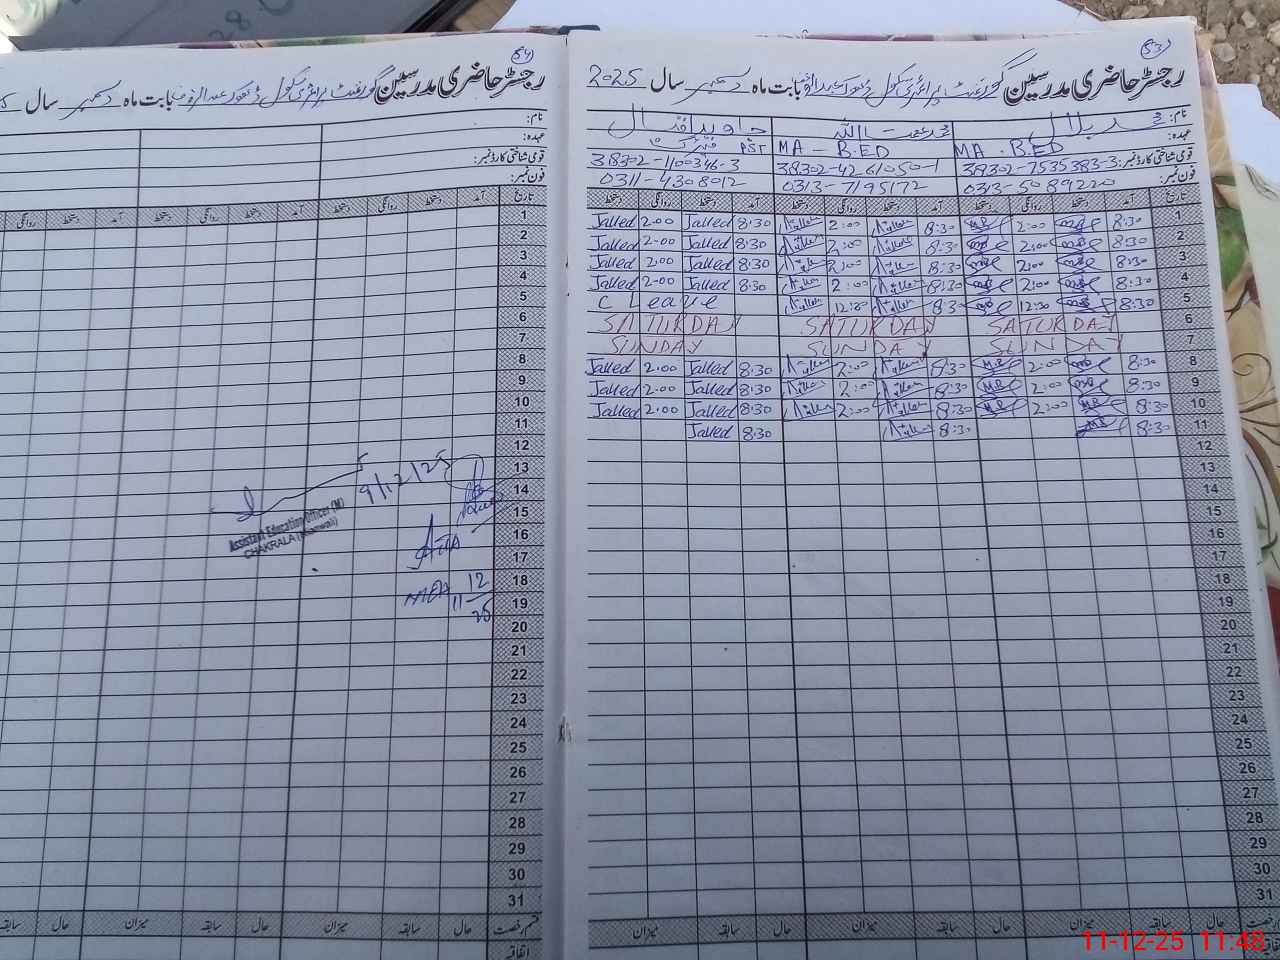 (53)
رجسٹر حاضری مدرسین گورنمنٹ پرائمری سکول بابت ماہ دسمبر سال 2025
نام: محمد بلال محمد عصمت اللہ جاوید اقبال
عہدہ: MA . B.ED MA - B.ED PST
قومی شناختی کارڈ نمبر: 38302-7535383-3 38302-4261050-1 38302-1100346-3
فون نمبر: 0313-5089220 0313-7195172 0311-4308012
تاریخ آمد دستخط روانگی دستخط آمد دستخط روانگی دستخط آمد دستخط روانگی دستخط
1 8:30 2:00 8:30 2:00 8.30 Javed 2.00 Javed
2 8:30 2:00 8:30 2:00 8:30 Javed 2.00 Javed
3 8:30 2:00 8:30 2:00 8:30 Javed 2.00 Javed
4 8:30 2:00 8:30 2:00 8:30 Javed 2.00 Javed
5 8:30 12:30 8:3 12:30 C Leave
6 SATURDAY SATURDAY SATURDAY
7 SUNDAY SUNDAY SUNDAY
8 8:30 2:00 8:30 2:00 8.30 Javed 2.00 Javed
9 8:30 2:00 8:30 2:00 8:30 Javed 2.00 Javed
10 8:30 2:00 8:30 2:00 8:30 Javed 2.00 Javed
11 8:30 8:30 8:30 Javed
12
13
14
15
16
17
18
19
20
21
22
23
24
25
26
27
28
29
30
31
حال سابقہ میزان حال سابقہ میزان حال سابقہ میزان
11-12-25 11:48
(54)
رجسٹر حاضری مدرسین گورنمنٹ پرائمری سکول بابت ماہ دسمبر سال
نام:
عہدہ:
قومی شناختی کارڈ نمبر:
فون نمبر:
تاریخ آمد دستخط روانگی دستخط آمد دستخط روانگی دستخط آمد دستخط روانگی
1
2
3
4
5
6
7
8
9
10
11
12
13
14
15
16
17
18
19
20
21
22
23
24
25
26
27
28
29
30
31
9/12/25
Assistant Education Officer (M)
CHAKRALA (Mianwali)
MEA 11 12
25
قسم رخصت حال سابقہ میزان حال سابقہ میزان حال سابقہ
اتفاقیہ